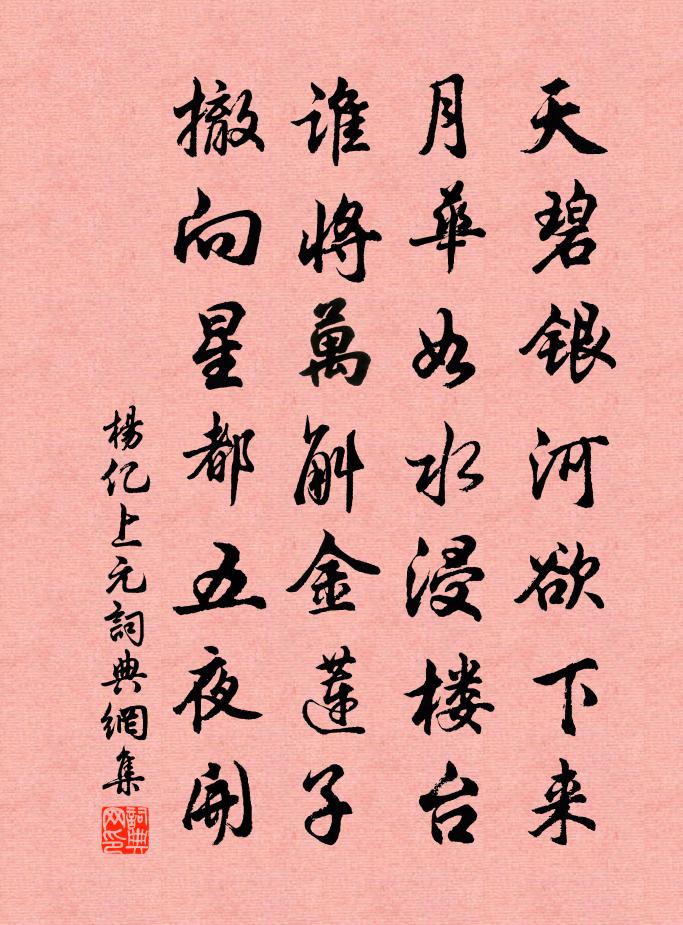 天碧银河欲下来
月華如水浸楼台
谁將萬斛金蓮子
撤向星都五夜開
楊亿上元詞典網集
詞典
网印